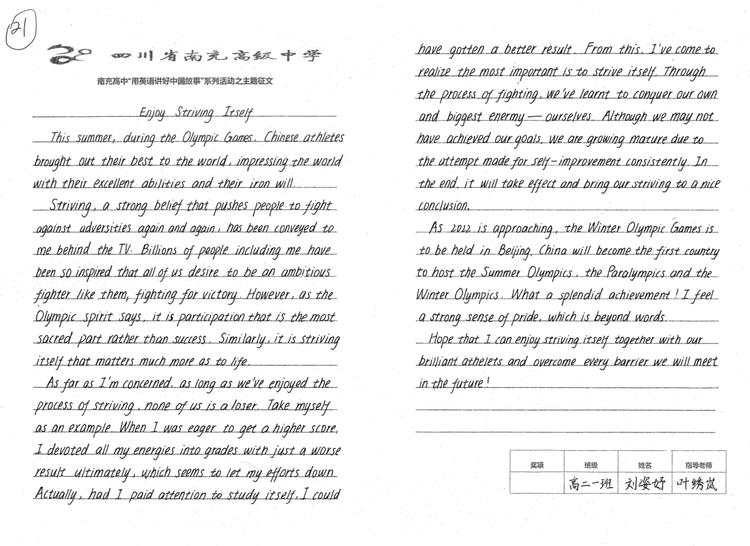 21
四川省南充高级中学
南充高中“用英语讲好中国故事”系列活动之主题征文
Enjoy Striving Itself
This summer, during the Olympic Games, Chinese athletes
brought out their best to the world, impressing the world
with their excellent abilities and their iron will.
Striving, a strong belief that pushes people to fight
against adversities again and again, has been conveyed to
me behind the TV. Billions of people including me have
been so inspired that all of us desire to be an ambitious
fighter like them, fighting for victory. However, as the
Olympic spirit says, it is participation that is the most
sacred part rather than success. Similarly, it is striving
itself that matters much more as to life.
As far as I'm concerned, as long as we've enjoyed the
process of striving, none of us is a loser. Take myself
as an example. When I was eager to get a higher score,
I devoted all my energies into grades with just a worse
result ultimately, which seems to let my efforts down.
Actually, had I paid attention to study itself, I could
have gotten a better result. From this, I've come to
realize the most important is to strive itself. Through
the process of fighting, we've learnt to conquer our own
and biggest enermy — ourselves. Although we may not
have achieved our goals, we are growing mature due to
the attempt made for self-improvement consistently. In
the end, it will take effect and bring our striving to a nice
conclusion.
As 2022 is approaching, the Winter Olympic Games is
to be held in Beijing. China will become the first country
to host the Summer Olympics, the Paralympics and the
Winter Olympics. What a splendid achievement! I feel
a strong sense of pride, which is beyond words.
Hope that I can enjoy striving itself together with our
brilliant athelets and overcome every barrier we will meet
in the future!
奖项 班级 姓名 指导老师
高二一班 刘姿妤 叶绣岚